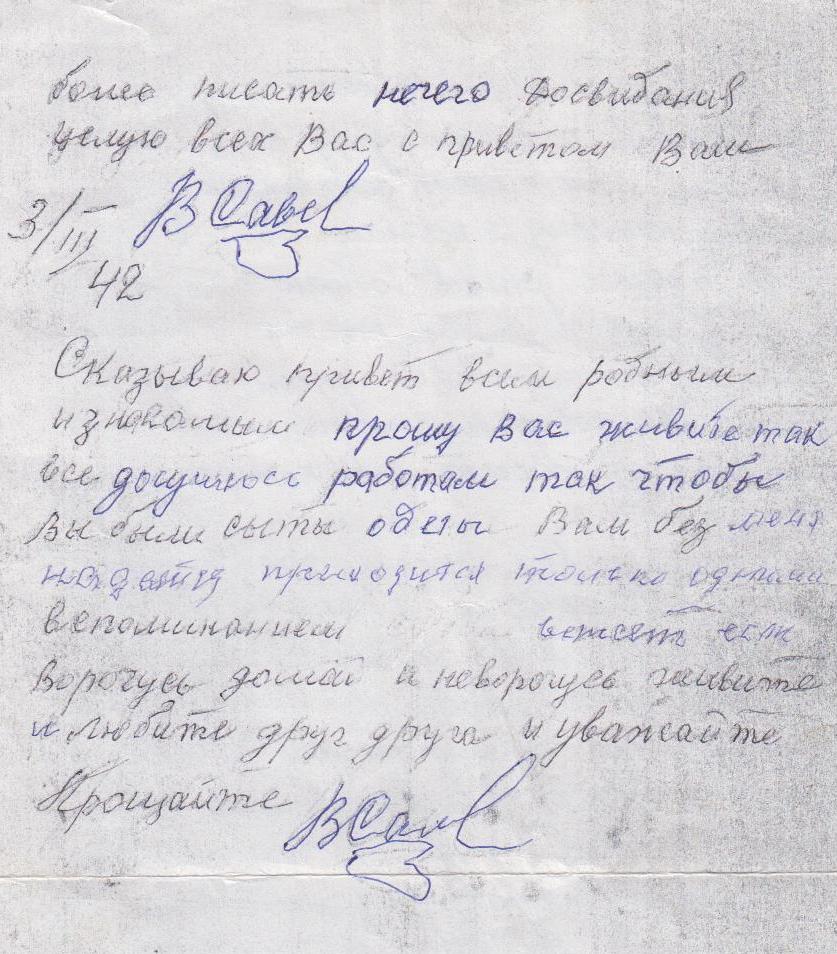 более писать нечего Досвидания
целую всех Вас с приветом Ваш
В Савел
3/III
42
Сказываю привет всем родным
и знакомым прошу Вас живите так
все работам так чтобы
Вы были сыты одеты Вам без меня
приходится только одними
вспоминанием если
Ворочусь домой а неворочусь живите
и любите друг друга и уважайте
Прощайте